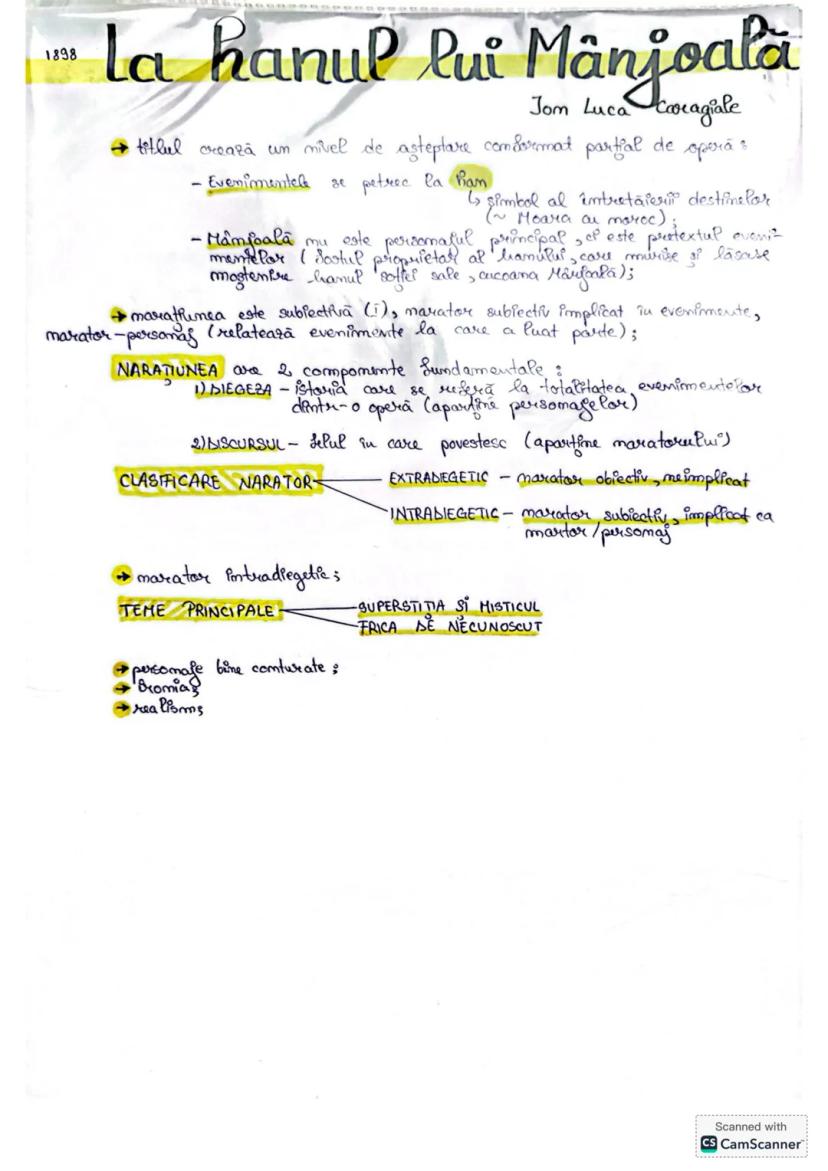 1898 La hanul lui Mânjoală
Ion Luca Caragiale
→ titlul crează un nivel de așteptare confirmat parțial de operă:
- Evenimentele se petrec la han
↳ simbol al întretăierii destinelor
(~ Moara cu noroc);
- Mânjoală nu este personajul principal, ci este pretextul eveni-
mentelor (fostul proprietar al hanului, care murise și lăsase
moștenire hanul soției sale, cucoana Mânjoală);
→ narațiunea este subiectivă (I), narator subiectiv implicat în evenimente,
narator-personaj (relatează evenimente la care a luat parte);
NARAȚIUNEA are 2 componente fundamentale:
1) DIEGEZA - istoria care se referă la totalitatea evenimentelor
dintr-o operă (aparține personajelor)
2) DISCURSUL - felul în care povestesc (aparține naratorului)
CLASIFICARE NARATOR EXTRADIEGETIC - narator obiectiv, neimplicat
INTRADIEGETIC - narator subiectiv, implicat ca
martor/personaj
→ narator intradiegetic;
TEME PRINCIPALE SUPERSTIȚIA ȘI MISTICUL
FRICA DE NECUNOSCUT
→ personaje bine conturate;
→ ironia;
→ realism;
Scanned with
CS CamScanner